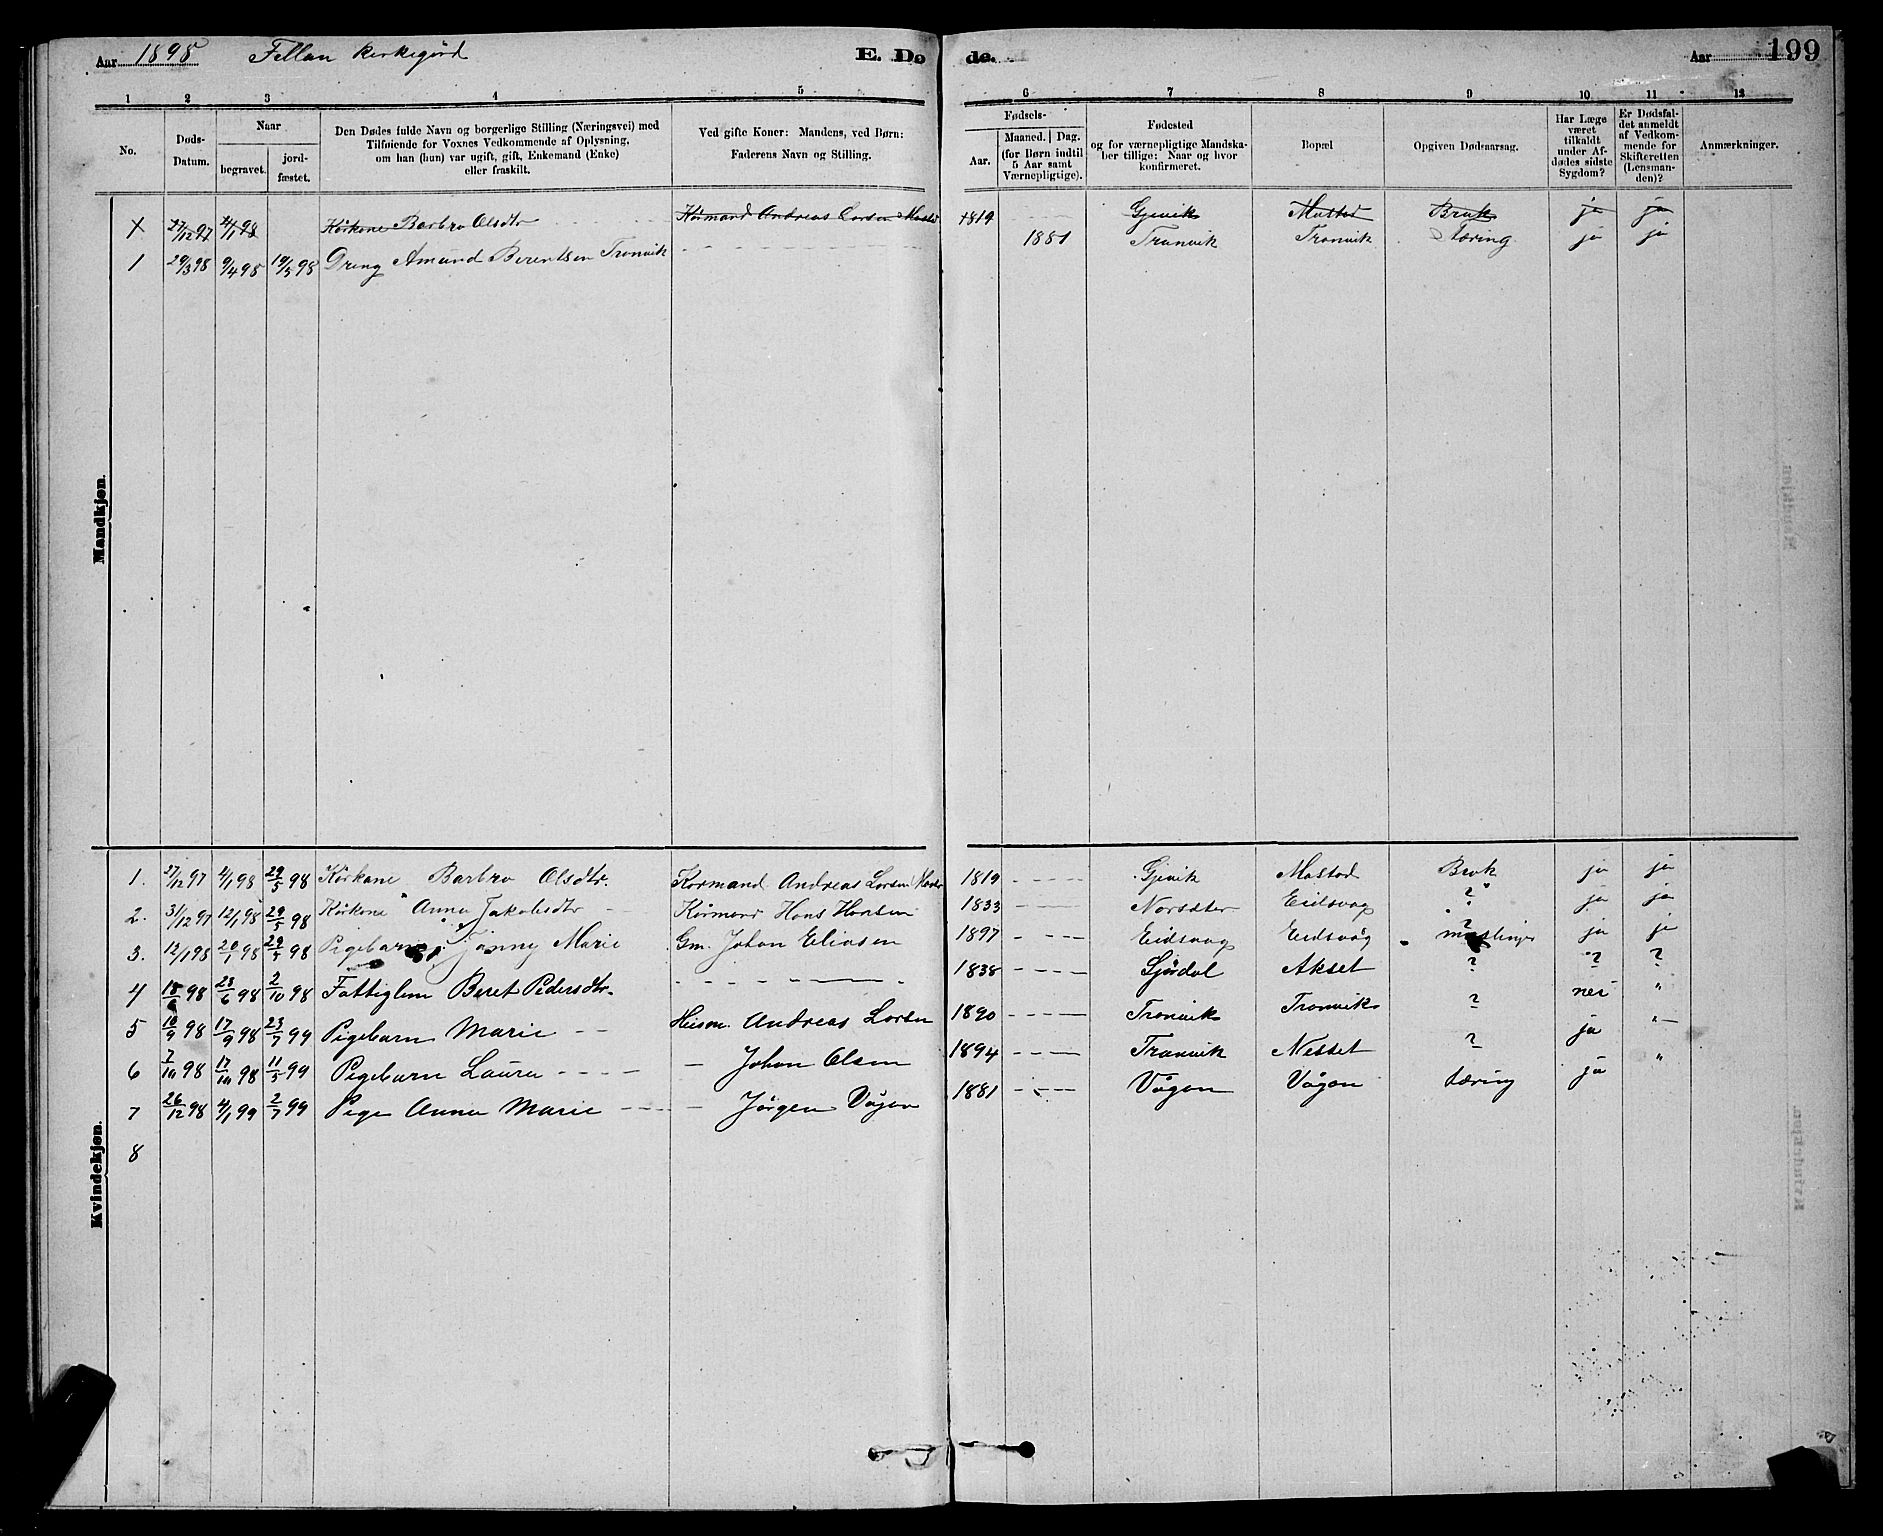 Aar 1898 Fillan kirkegård E. Dø de. Aar 199
1 2 3 4 5 6 7 8 9 10 11 12
No.
Døds-Datum.
Naar
begravet.
jordfæstet.
Den Dødes fulde Navn og borgerlige Stilling (Næringsvei) med
Tilføiende for Voxnes Vedkommende af Oplysning,
om han (hun) var ugift, gift, Enkemand (Enke)
eller fraskilt.
Ved gifte Koner: Mandens, ved Børn:
Faderens Navn og Stilling.
Fødsels-
Aar.
Maaned. Dag.
(for Børn indtil
5 Aar samt
Værnepligtige).
Fødested
og for værnepligtige Mandskaber tillige: Naar og hvor
konfirmeret.
Bopæl
Opgiven Dødsaarsag.
Har Læge
været
tilkaldt
under Afdødes sidste
Sygdom?
Er Dødsfaldet anmeldt
af Vedkommende for
Skifteretten
(Lensmanden)?
Anmærkninger.
Mandkjøn.
27/12 97 4/1 98 Kårkone Barbro Olsdtr Kårmand Andreas Larsen Mastad 1819 Gjevik Mastad Bruk ja ja
1 29/3 98 9/4 98 19/5 98 Dreng Amund Berentsen Tranvik 1881 Tranvik Tranvik Tæring ja ja
Kvindekjøn.
1. 27/12 97 4/1 98 29/5 98 Kårkone Barbro Olsdtr. Kårmand Andreas Larsen 1819 Gjevik Mastad Brok ja ja
2. 31/12 97 12/1 98 29/5 98 Kårkone Anna Jakobsdtr Kårmand Hans Hansen 1833 Eidsvåg ? ja ja
3. 12/1 98 20/1 98 29/5 98 Pigebarn Janny Marie Gm. Johan Eliasen 1897 Eidsvaag Eidsvåg meslinger ja ja
4 18/6 98 23/6 98 2/10 98 Fattiglem Beret Pedersdtr. 1838 Akset ? ? ?
5 10/9 98 17/9 98 23/7 99 Pigebarn Marie Husm. Andreas Larsen 1890 Tranvik Tranvik ? nei "
6 7/10 98 17/10 98 11/5 99 Pigebarn Laura — Johan Olsen 1894 Tranvik Nesset ? ja "
7 26/12 98 4/1 99 2/7 99 Pige Anna Marie — Jørgen Vågan 1881 Vågan Vågan tæring ja "
8